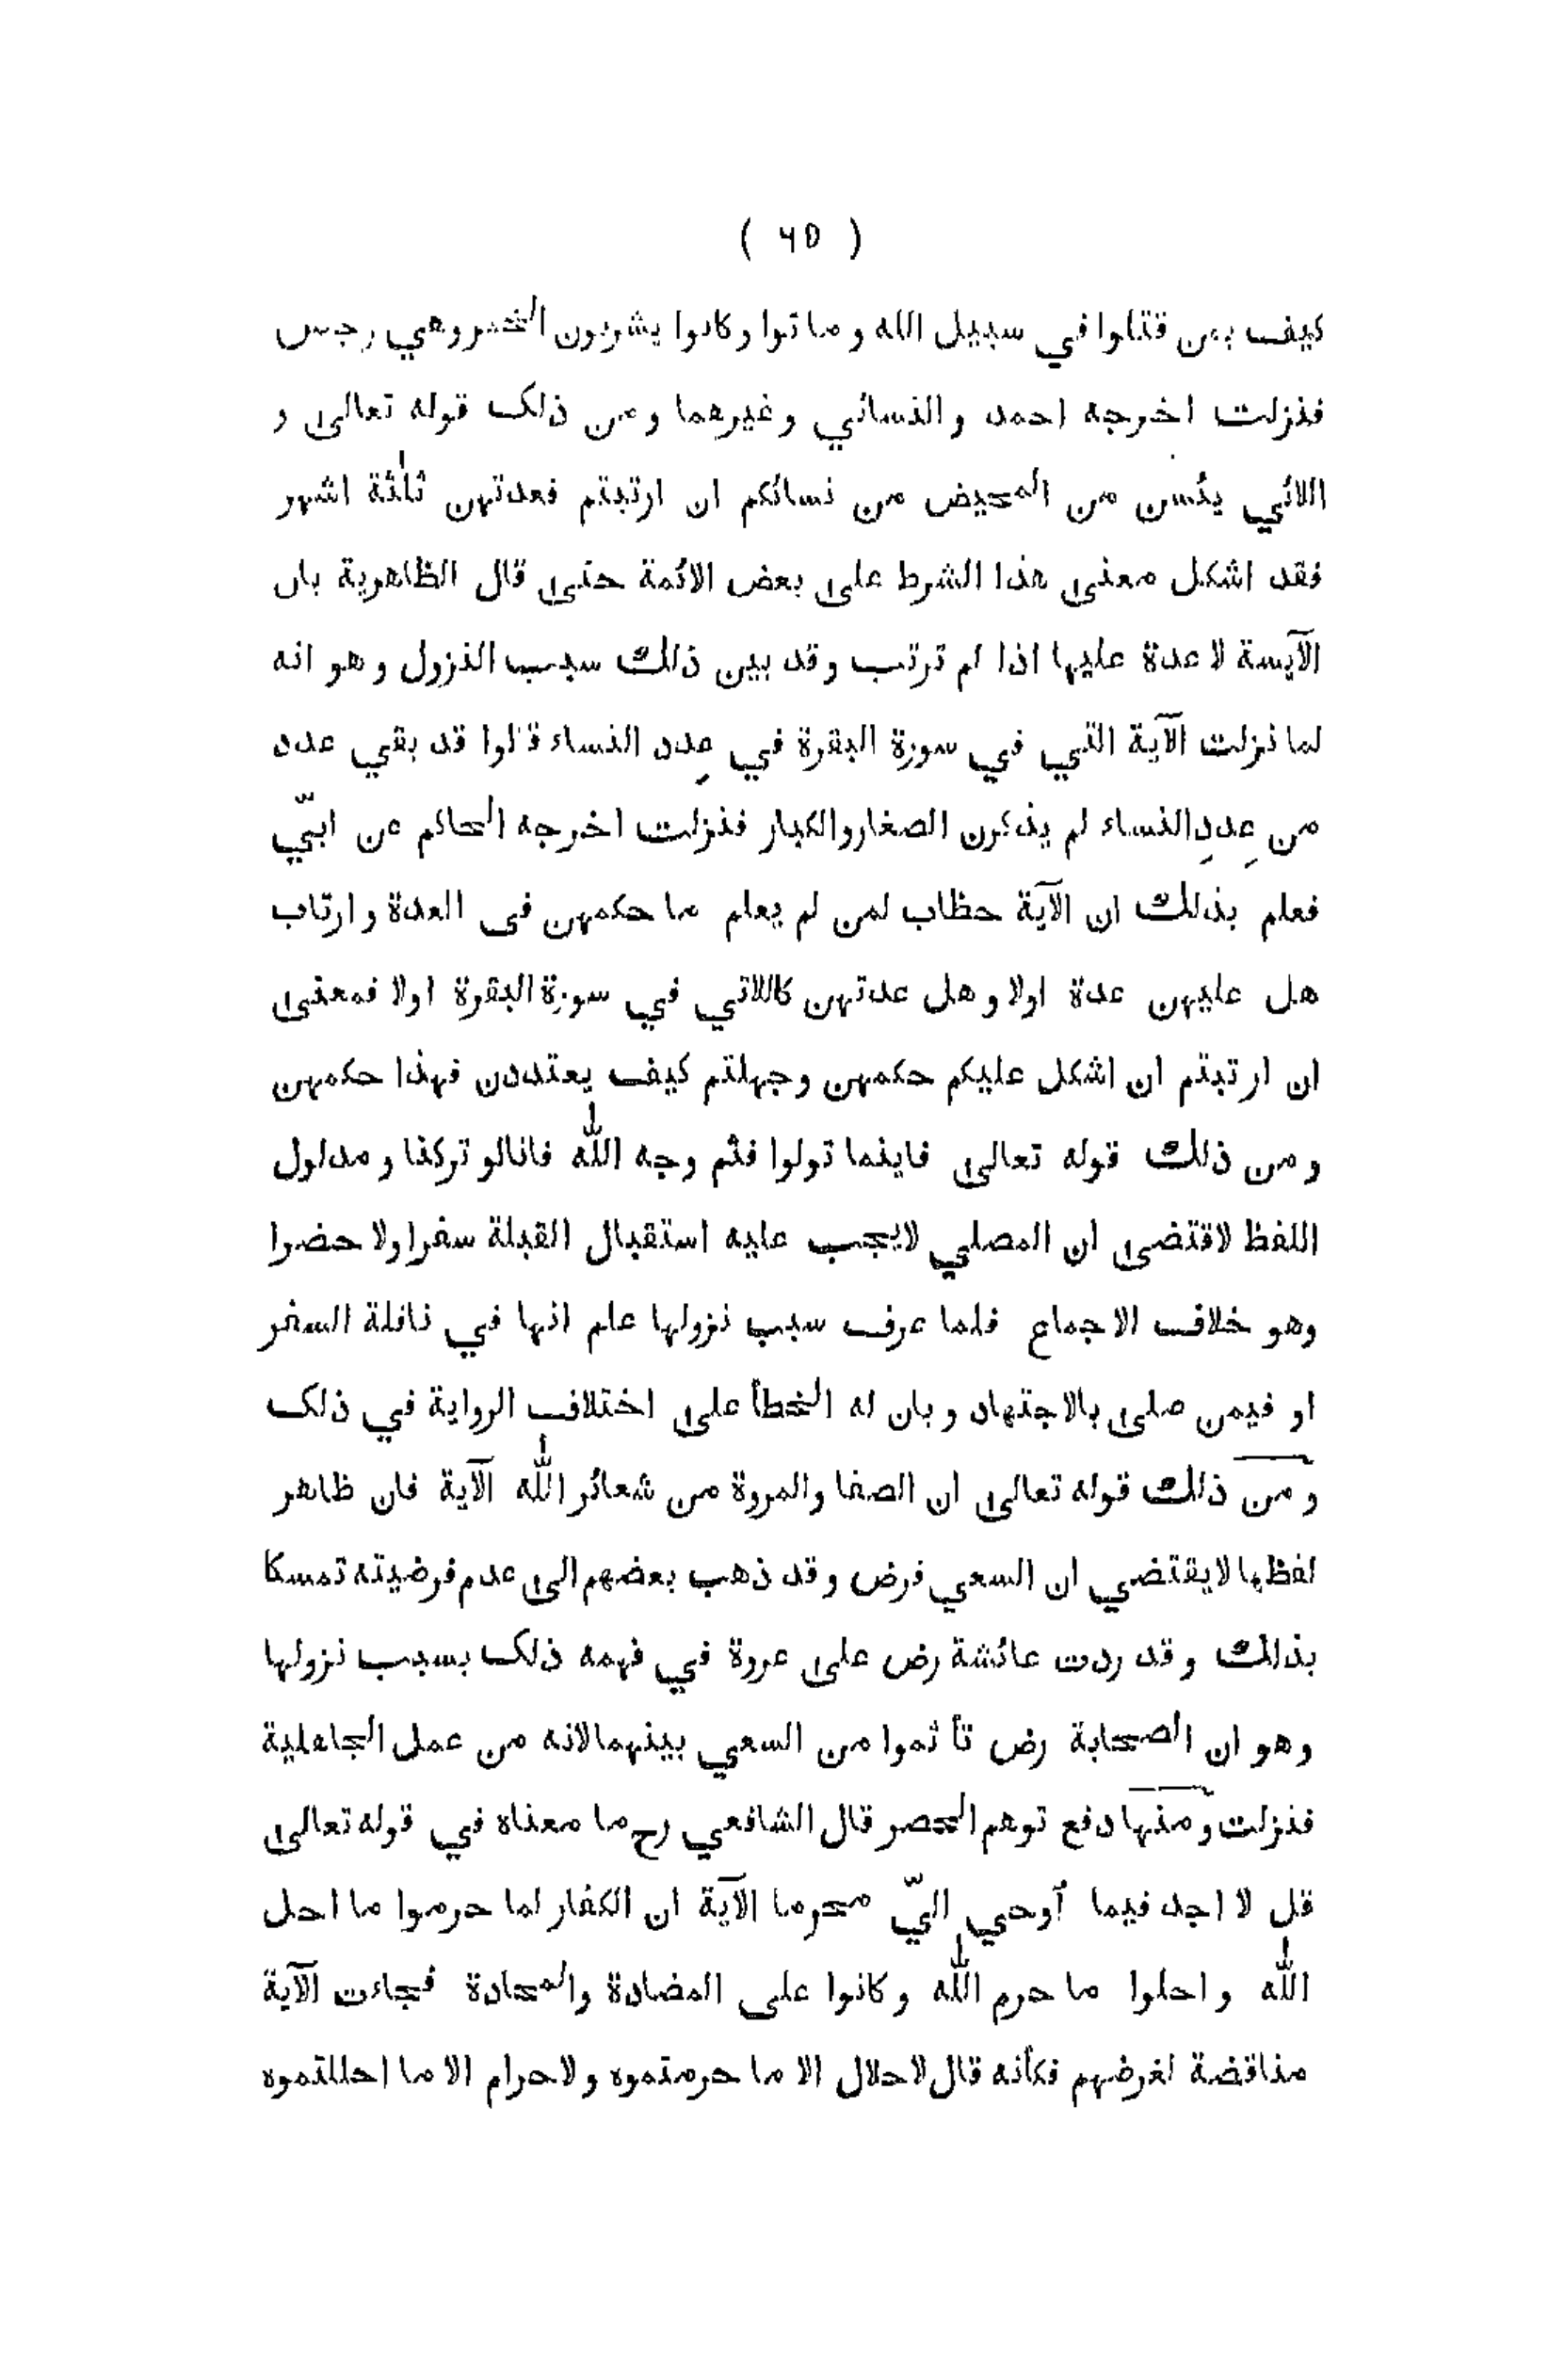 ( ٦٥ )
كيف بمن قتلوا في سبيل الله وماتوا وكانوا يشربون الخمر وهي رجس
فنزلت اخرجه احمد والنسائي وغيرهما ومن ذلک قوله تعالى و
اللائي يئسن من المحيض من نسائكم ان ارتبتم فعدتهن ثلٰثة اشهر
فقد اشكل معنى هذا الشرط على بعض الائمة حتى قال الظاهرية بان
الآيسة لا عدة عليها اذا لم ترتب وقد بين ذلك سبب النزول وهو انه
لما نزلت الآية التي في سورة البقرة في عِدد النساء قالوا قد بقي عدد
من عِددِ النساء لم يذكرن الصغار والكبار فنزلت اخرجه الحاكم عن ابيّ
فعلم بذلك ان الآية حظاب لمن لم يعلم ما حكمهن فى العدة وارتاب
هل عليهن عدة اولا وهل عدتهن كاللاتي في سورة البقرة اولا فمعنى
ان ارتبتم ان اشكل عليكم حكمهن وجهلتم كيف يعتددن فهذا حكمهن
ومن ذلك قوله تعالى فاينما تولوا فثم وجه الله فانالو تركنا ومدلول
اللفظ لاقتضى ان المصلي لايجب عليه استقبال القبلة سفرا ولا حضرا
وهو خلاف الاجماع فلما عرف سبب نزولها علم انها في نافلة السفر
او فيمن صلى بالاجتهاد وبان له الخطأ على اختلاف الرواية في ذلک
ومن ذلك قوله تعالى ان الصفا والمروة من شعائر الله الآية فان ظاهر
لفظها لايقتضي ان السعي فرض وقد ذهب بعضهم الى عدم فرضيته تمسكا
بذلك وقد ردت عائشة رض على عروة في فهمه ذلک بسبب نزولها
وهو ان الصحابة رض تأثموا من السعي بينهما لانه من عمل الجاهلية
فنزلت ومنها دفع توهم الحصر قال الشافعي رح ما معناه في قوله تعالى
قل لا اجد فيما اُوحي اليّ محرما الآية ان الكفار لما حرموا ما احل
الله واحلوا ما حرم الله وكانوا على المضادة والمحادة فجاءت الآية
مناقضة لغرضهم فكأنه قال لاحلال الا ما حرمتموه ولاحرام الا ما احللتموه